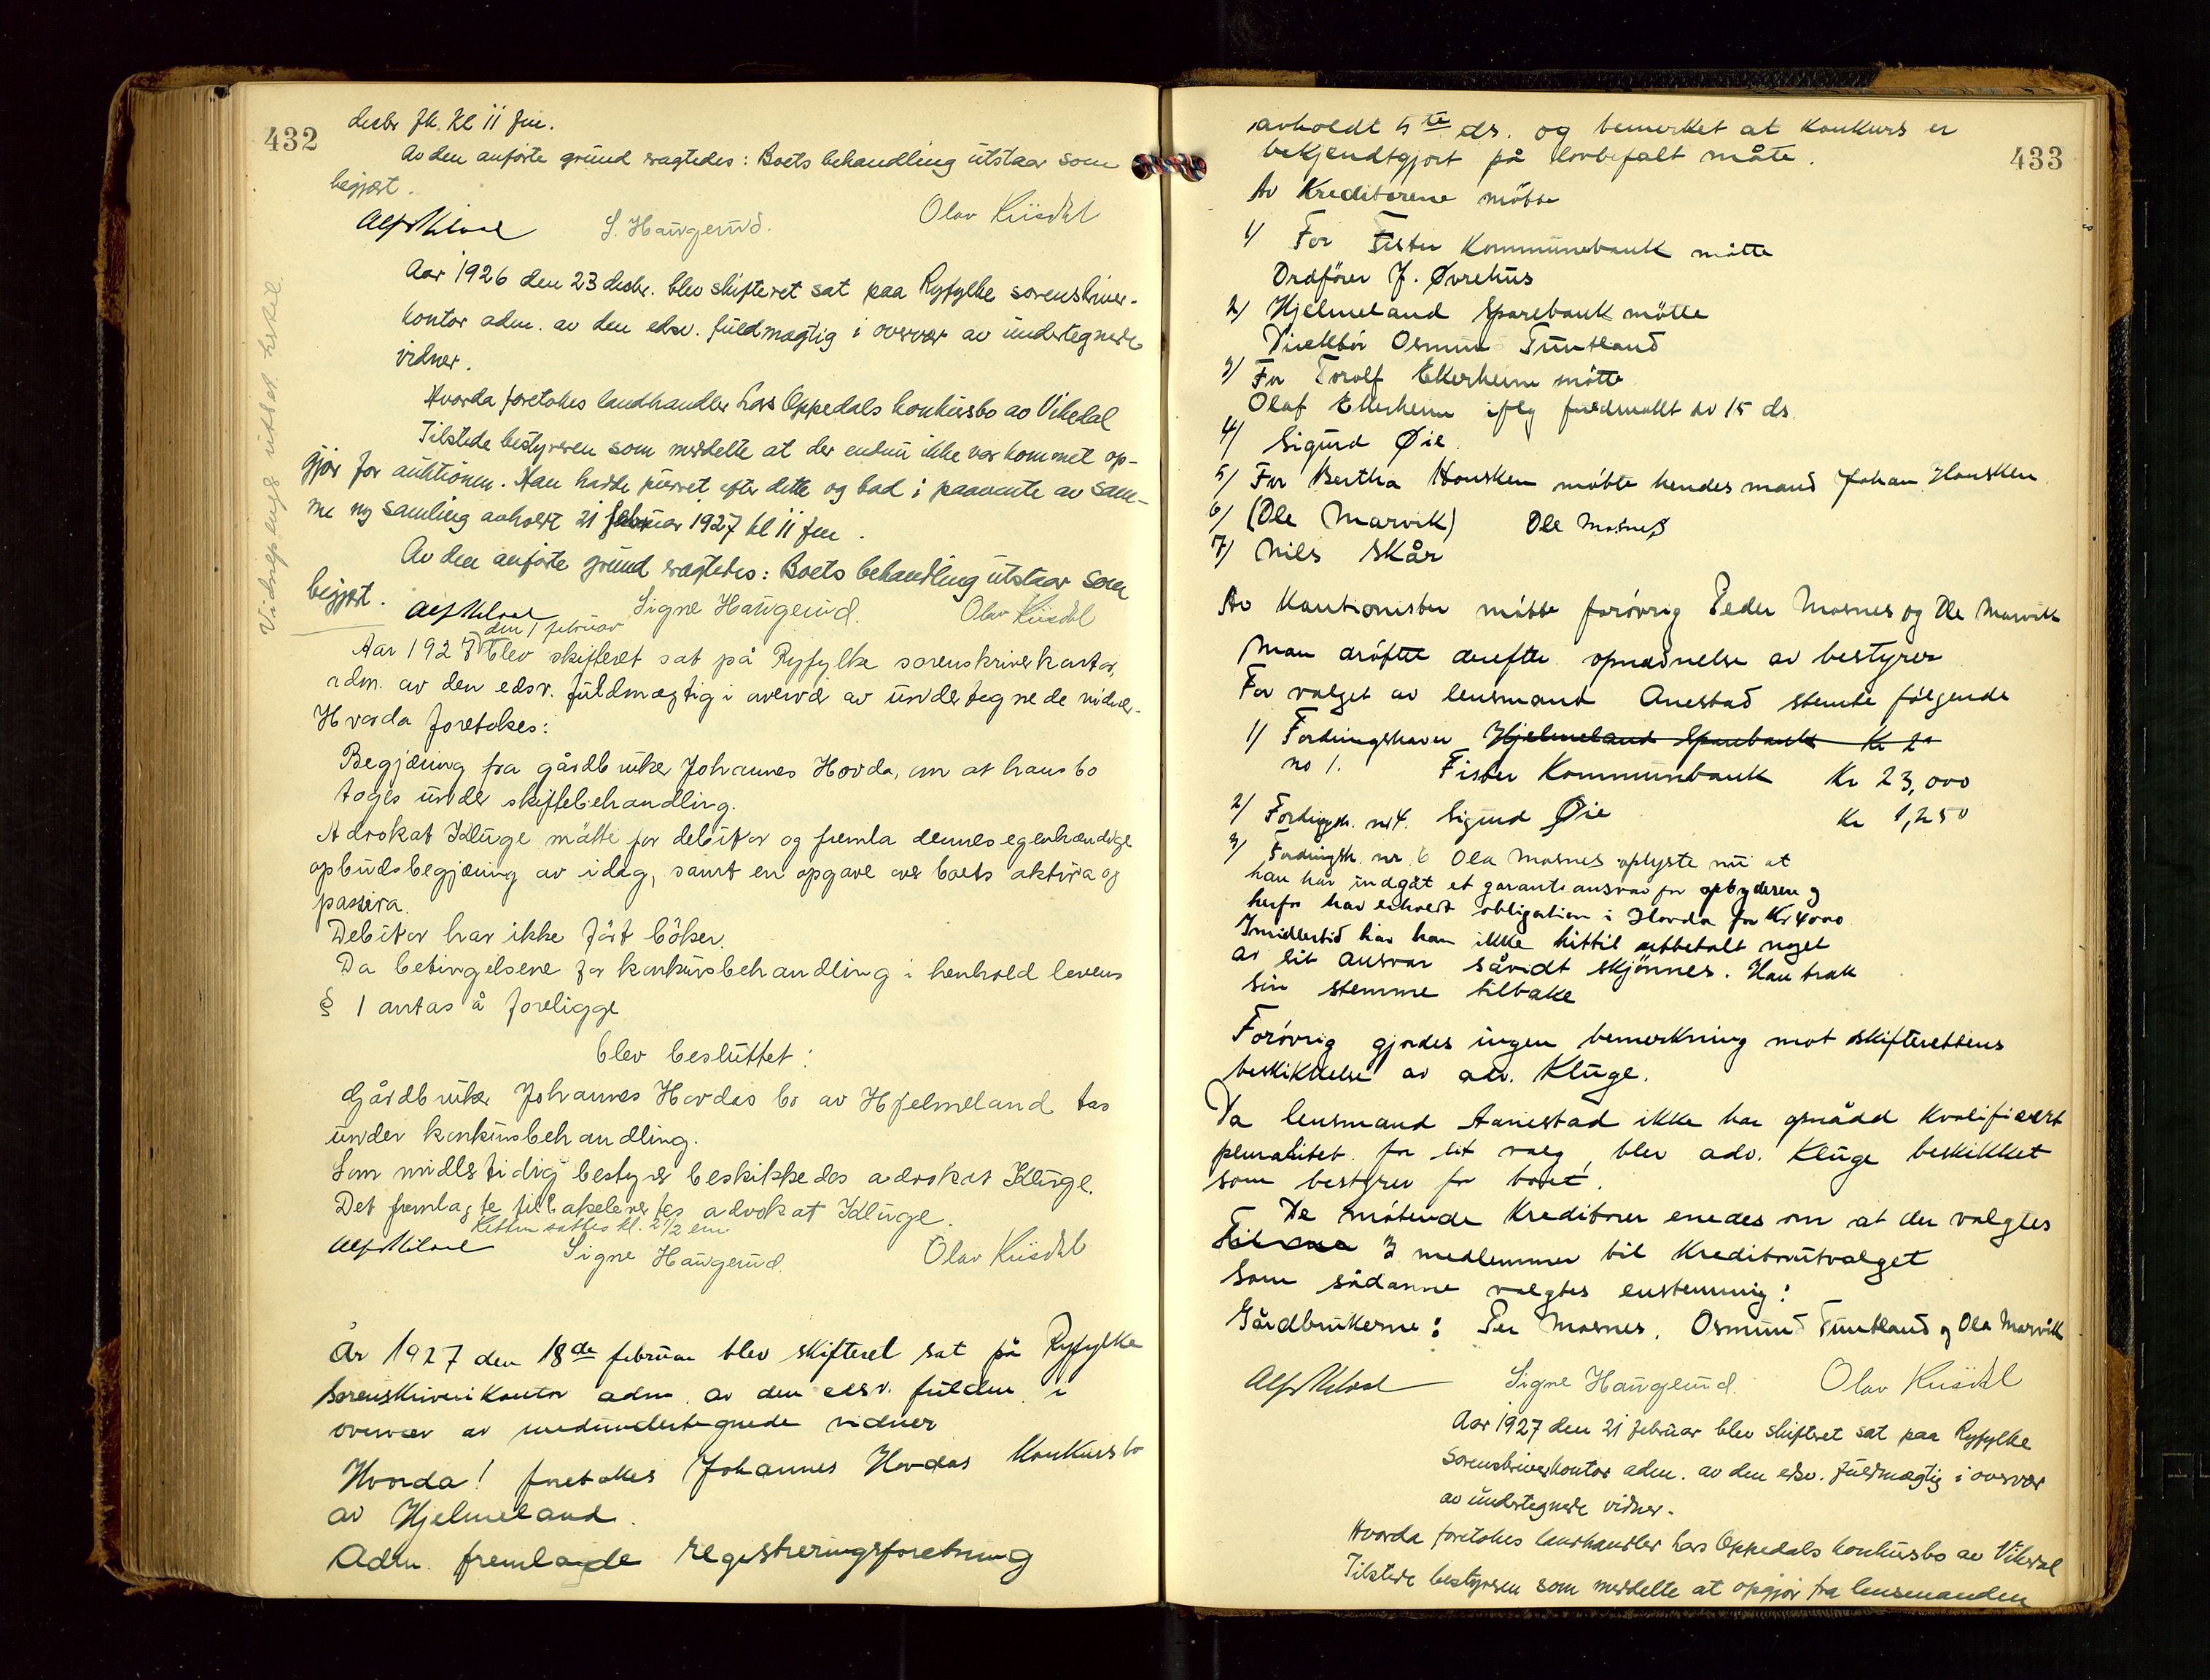 432
desbr fk. kl 11 fm.
Av den anførte grund vagtedes: Boets behandling utstaar som
begjært.
S. Haugerud. Olav Risdal
Aar 1926 den 23 desbr. blev skifteret sat paa Ryfylke sorenskriver-
kontor adm. av den edsv. fuldmægtig i overvær av undertegnede
vidner.
Hvorda foretokes landhandler Lars Oppedals konkursbo av Vikedal
Tilstede bestyreren som meddelte at der endnu ikke var kommet op-
gjør for auktionen. Han hadde purret efter dette og bad i paavente av sam-
me ny samling avholdt 21 februar 1927 kl 11 fm.
Av den anførte grund vagtedes: Boets behandling utstaar som
begjært.
Signe Haugerud. Olav Risdal
den 1 februar
Aar 1927 blev skifteret sat på Ryfylke sorenskriverkontor,
adm. av den edsv. fuldmægtig i overvær av undertegnede vidner.
Hvorda foretokes:
Begjæring fra gårdbruker Johannes Hovda, om at hans bo
toges under skiftebehandling.
Advokat Kluge møtte for debitor og fremla dennes egenhændige
opbudsbegjæring av idag, samt en opgave over boets aktiva og
passiva.
Debitor har ikke ført bøker.
Da betingelsene for konkursbehandling i henhold lovens
§ 1 antas å foreligge
blev besluttet:
Gårdbruker Johannes Hovdas bo av Hjelmeland tas
under konkursbehandling.
Som midlertidig bestyrer beskikkedes advokat Kluge.
Det fremlagte tilbakelevertes advokat Kluge.
Retten sattes kl. 2 1/2 em
Signe Haugerud. Olav Risdal
År 1927 den 18de februar blev skifteret sat på Ryfylke
Sorenskriverikontor adm. av den edsv. fuldm. i
overvær av medundertegnede vidner
Hvorda! foretokes Johannes Hovdas Konkursbo
av Hjelmeland.
Adm. fremlagde registreringsforetning
433
avholdt 5te ds. og bemerket at konkurs er
bekjendtgjort på lovbefalt måte.
Av Kreditorene møtte
1/ For Fister Kommunebank møtte
Ordfører J. Øvrehus
2/ Hjelmeland Sparebank møtte
Osmund Tuntland
3/ For Torolf Ekerheim møtte
Olaf Ekerheim iflg fuldmakt av 15 ds.
4/ Sigurd Øie.
5/ For Bertha Hausken møtte hendes mand Johan Hausken
6/ (Ole Marvik) Ole Mosnes
7/ Nils Skår
Av Kautionister møtte forøvrig Peder Mosnes og Ole Marvik
Man drøftet derefter opnævnelse av bestyrer
For valget av lensmand Anestad stemte følgende
1/ Fordringshaver Hjelmeland Sparebank Kr 2
no 1. Fister Kommunebank Kr 23,000
2/ Fordrgsh. nr 4. Sigurd Øie Kr 1,250
3/ Fordringsh. nr. 6 Ole Mosnes oplyste nu at
han har indgåt et garantiansvar for opbyderen og
herfor har erholdt obligation i Hovda for Kr 4000
Imidlertid har han ikke hittil utbetalt noget
av sit ansvar såvidt skjønnes. Han trak
sin stemme tilbake
Forøvrig gjordes ingen bemerkning mot skifterettens
beskikkelse av adv. Kluge.
Da lensmand Aanestad ikke har opnådd kvalifisert
pluralitet for sit valg, blev adv. Kluge beskikket
som bestyrer for boet.
De møtende Kreditorer enedes om at der valgtes
3 medlemmer til Kreditorutvalget
Som sådanne valgtes enstemmig:
Gårdbrukerne: Per Mosnes, Osmund Tuntland og Ole Marvik
Signe Haugerud. Olav Risdal
Aar 1927 den 21 februar blev skifteret sat paa Ryfylke
Sorenskriverkontor adm. av den edsv. fuldmægtig i overvær
av undertegnede vidner.
Hvorda foretokes landhandler Lars Oppedals konkursbo av Vikedal
Tilstede bestyreren som meddelte at opgjør fra lensmanden